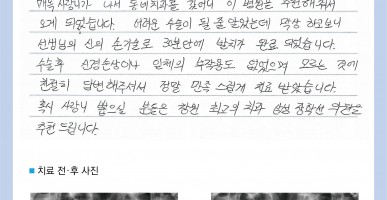 매복사랑니가 나서 동네치과를 갔더니 이 병원을 추천해줘서
오게 되었습니다. 어려운 수술이 될 줄 알았는데 막상 하고보니
선생님의 신의 손가술로 30분만에 발치가 완료 되었습니다.
수술후 신경손상이나 일체의 부작용도 없었으며 모르는 것에
친절히 답변해주셔서 정말 만족스럽게 치료 받았습니다.
혹시 사랑니 뽑으실 분들은 창원 최고의 치과
추천드립니다.
■ 치료 전·후 사진